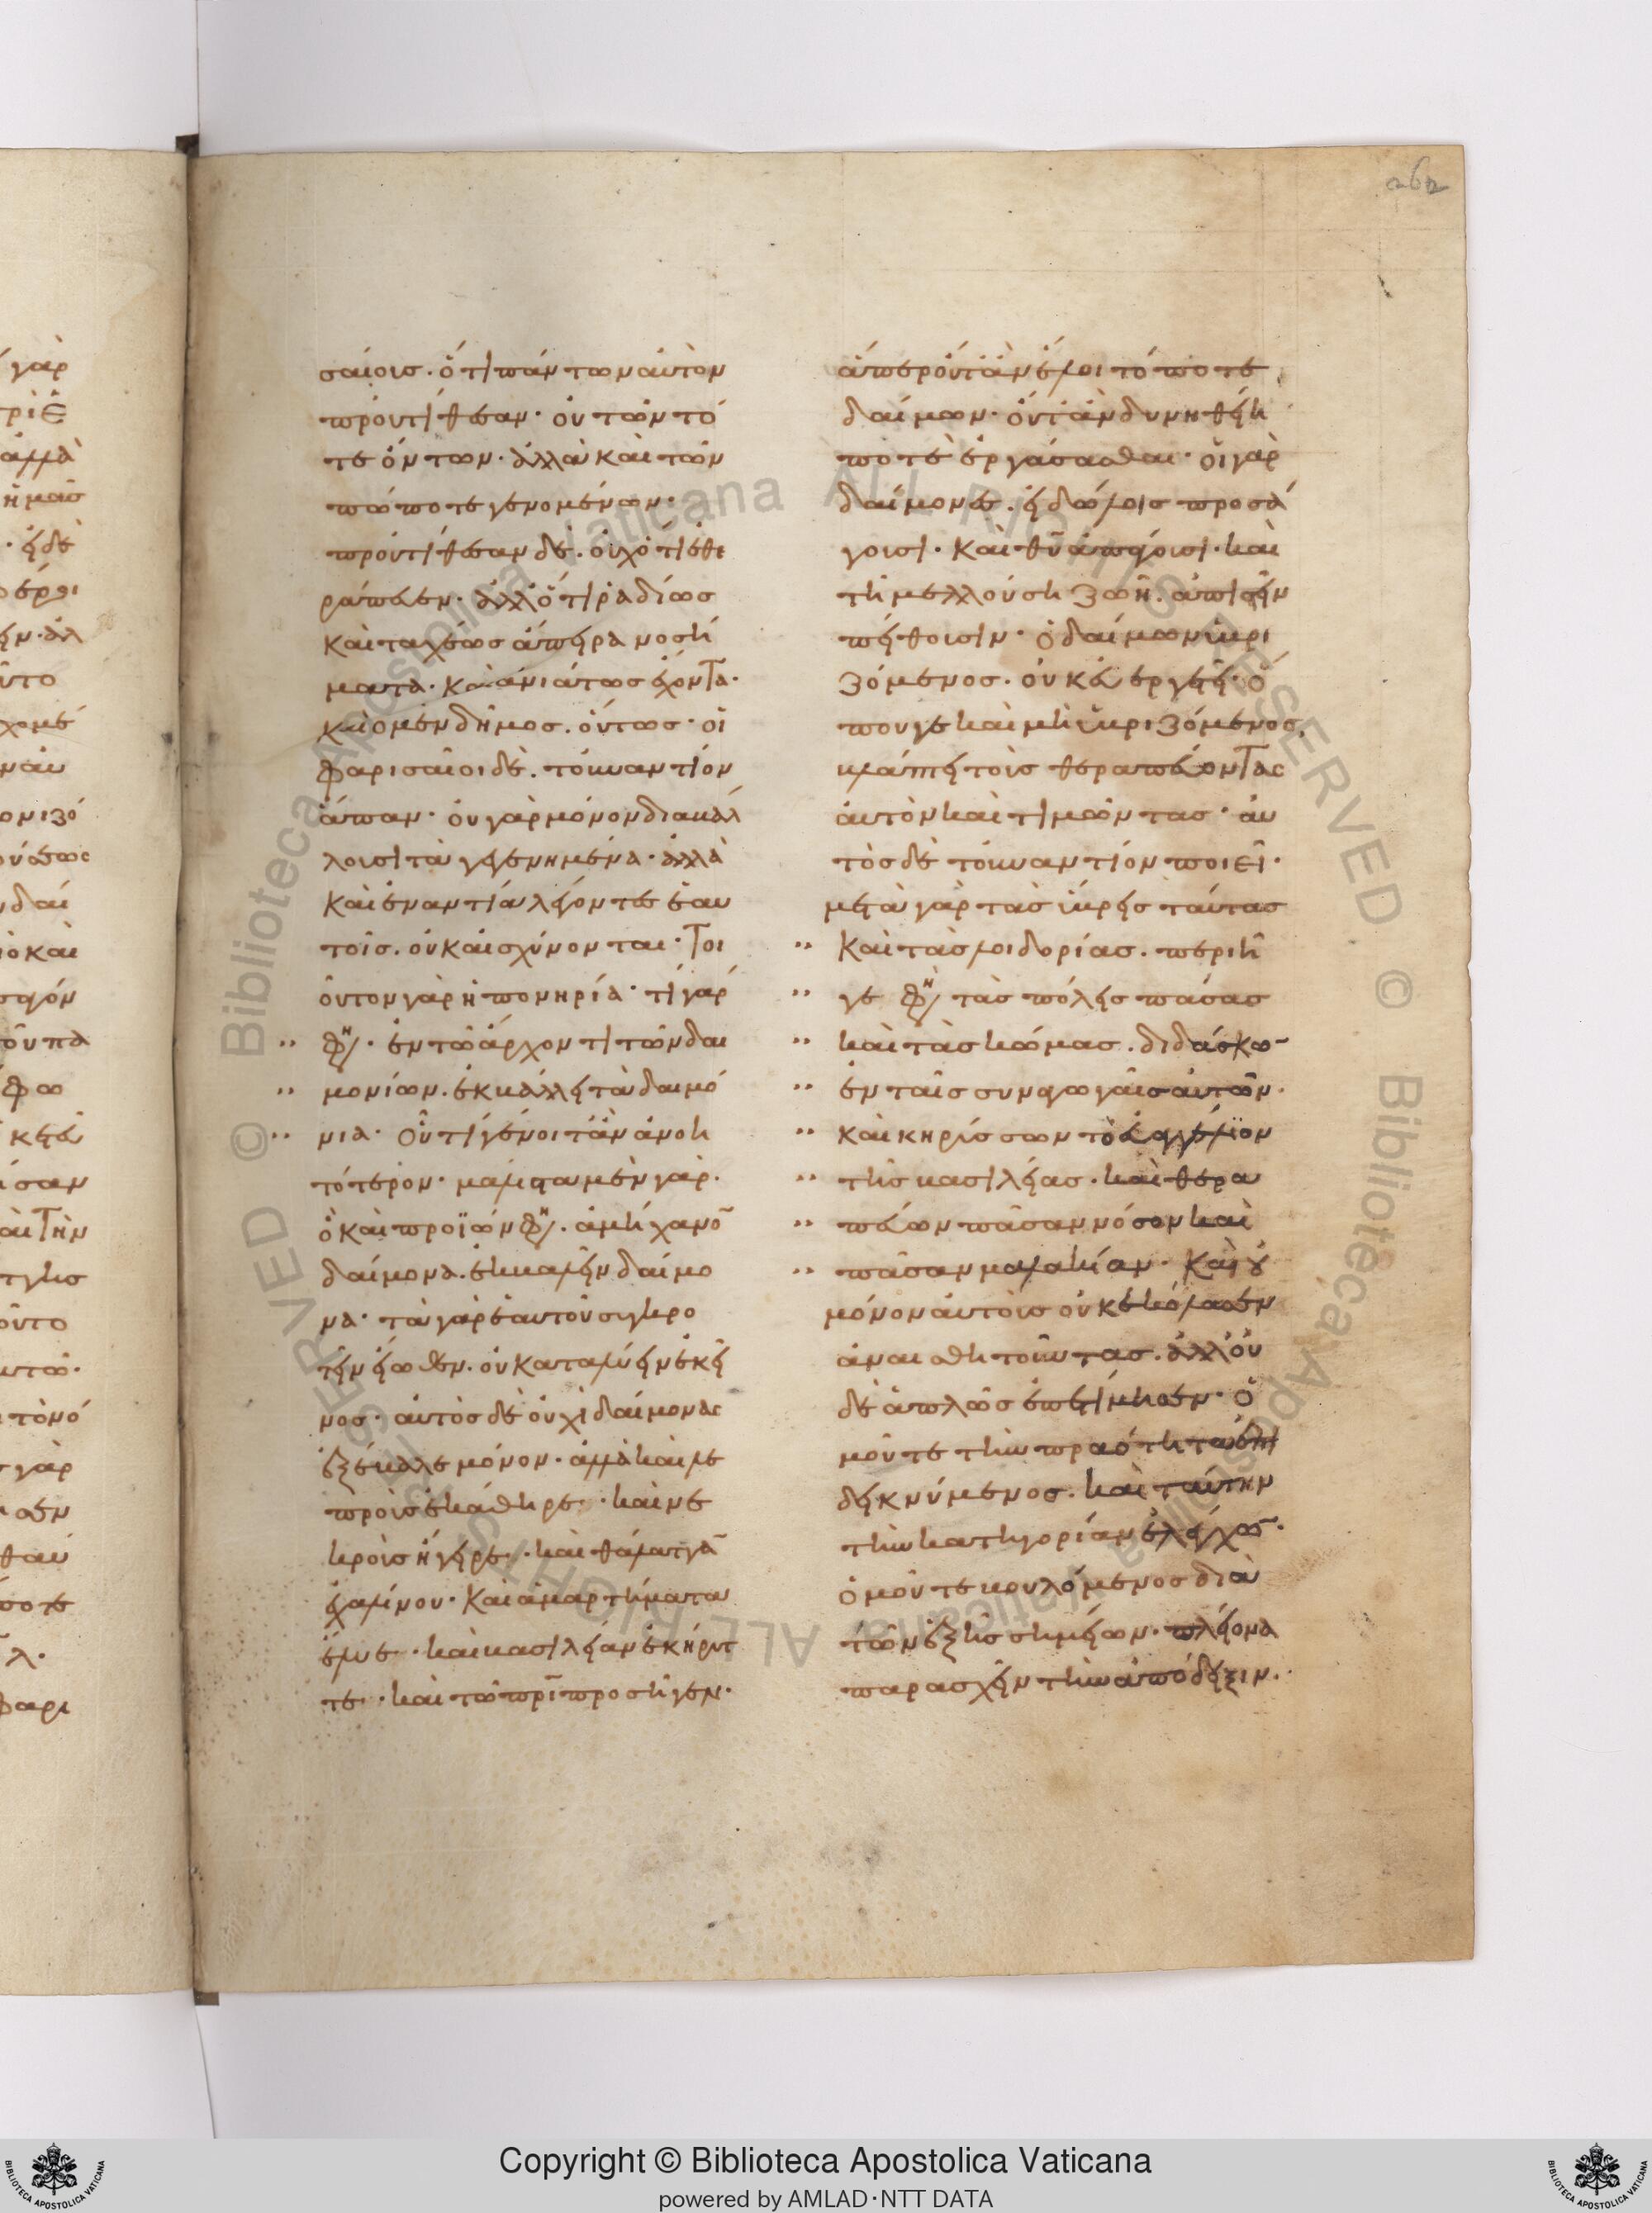 262
σαίοις. ὅτι πάντων αὐτὸν
προὐτίθεσαν· οὐ τῶν τό
τε ὄντων· ἀλλὰ καὶ τῶν
πώποτε γενομένων·
προὐτίθεσαν δὲ. οὐχ ὅτι ἐθε
ράπευεν· ἀλλ' ὅτι ῥαδίως
καὶ ταχέως ἄπειρα νοσή
ματα. καὶ ἀνιάτως ἔχοντα·
καὶ ὁ μὲν δῆμος. οὕτως· οἱ
φαρισαῖοι δὲ. τοὐναντίον
ἅπαν· οὐ γὰρ μόνον διαβάλ
λουσι τὰ γεγενημένα· ἀλλὰ
καὶ ἐναντία λέγοντες ἑαυ
τοῖς. οὐκ αἰσχύνονται· Τοι
οῦτον γὰρ ἡ πονηρία· τί γάρ
φη· ἐν τῶ ἄρχοντι τῶν δαι
μονίων. ἐκβάλλει τὰ δαιμό
νια· Οὗ τί γένοιτ' ἂν ἀνοη
τότερον· μάλιστα μὲν γάρ.
ὃ καὶ προϊών φη. ἀμήχανο̄
δαίμονα. ἐκβαλεῖν δαίμο
να· τὰ γὰρ ἑαυτοῦ συγκρο
τεῖν εἴωθεν. οὐ καταλύειν ἐκεῖ
νος· αὐτὸς δὲ οὐχὶ δαίμονας
ἐξέβαλε μόνον· ἀλλὰ καὶ λε
προὺς ἐκάθηρε· καὶ νε
κροὺς ἤγειρε· καὶ θάλατταν
ἐχαλίνου· Καὶ ἁμαρτήματα
ἔλυε· καὶ βασιλείαν ἐκήρυτ
τε· καὶ τῶ πρ̅ι προσῆγεν·
ἅπερ οὔτ' ἂν ἕλοιτό ποτε
δαίμων· οὔτ' ἂν δυνηθείη
ποτὲ ἐργάσασθαι· οἱ γὰρ
δαίμονες. εἰδώλοις προσά
γουσι· καὶ θ̅υ ἀπάγουσι· καὶ
τῆ μελλούση ζωῆ. ἀπιστεῖν
πείθουσιν· ὁ δαίμων ὑβρι
ζόμενος. οὐκ εὐεργετεῖ· ὅ
που γε καὶ μὴ ὑβριζόμενος,
βλάπτει τοὺς θεραπεύοντας
αὐτὸν καὶ τιμῶντας· αὐ
τὸς δὲ τοὐναντίον ποιεῖ·
μετὰ γὰρ τὰς ὕβρεις ταύτας
καὶ τὰς λοιδορίας. περιῆ
γε φη τὰς πόλεις πάσας
καὶ τὰς κώμας. διδάσκω̄
ἐν ταῖς συναγωγαῖς αὐτῶν·
καὶ κηρύσσων τὸ εὐαγγέλιον
τῆς βασιλείας. καὶ θερα
πεύων πᾶσαν νόσον καὶ
πᾶσαν μαλακίαν· Καὶ οὐ
μόνον αὐτοὺς οὐκ ἐκόλασεν
ἀναισθητοῦντας. ἀλλ' οὐ
δὲ ἁπλῶς ἐπετίμησεν· ὁ
μοῦ τε τὴν πραότητα ἐπι
δεικνύμενος. καὶ ταύτην
τὴν κατηγορίαν ἐλέγχω̄·
ὁμοῦ τε βουλόμενος διὰ
τῶν ἑξῆς σημείων. πλείονα
παρασχεῖν τὴν ἀπόδειξιν·
Copyright © Biblioteca Apostolica Vaticana
powered by AMLAD·NTT DATA